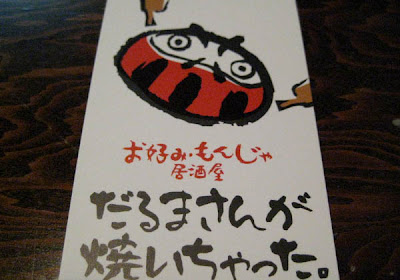 お好み・もんじゃ
居酒屋
だるまさんが
焼いちゃった。